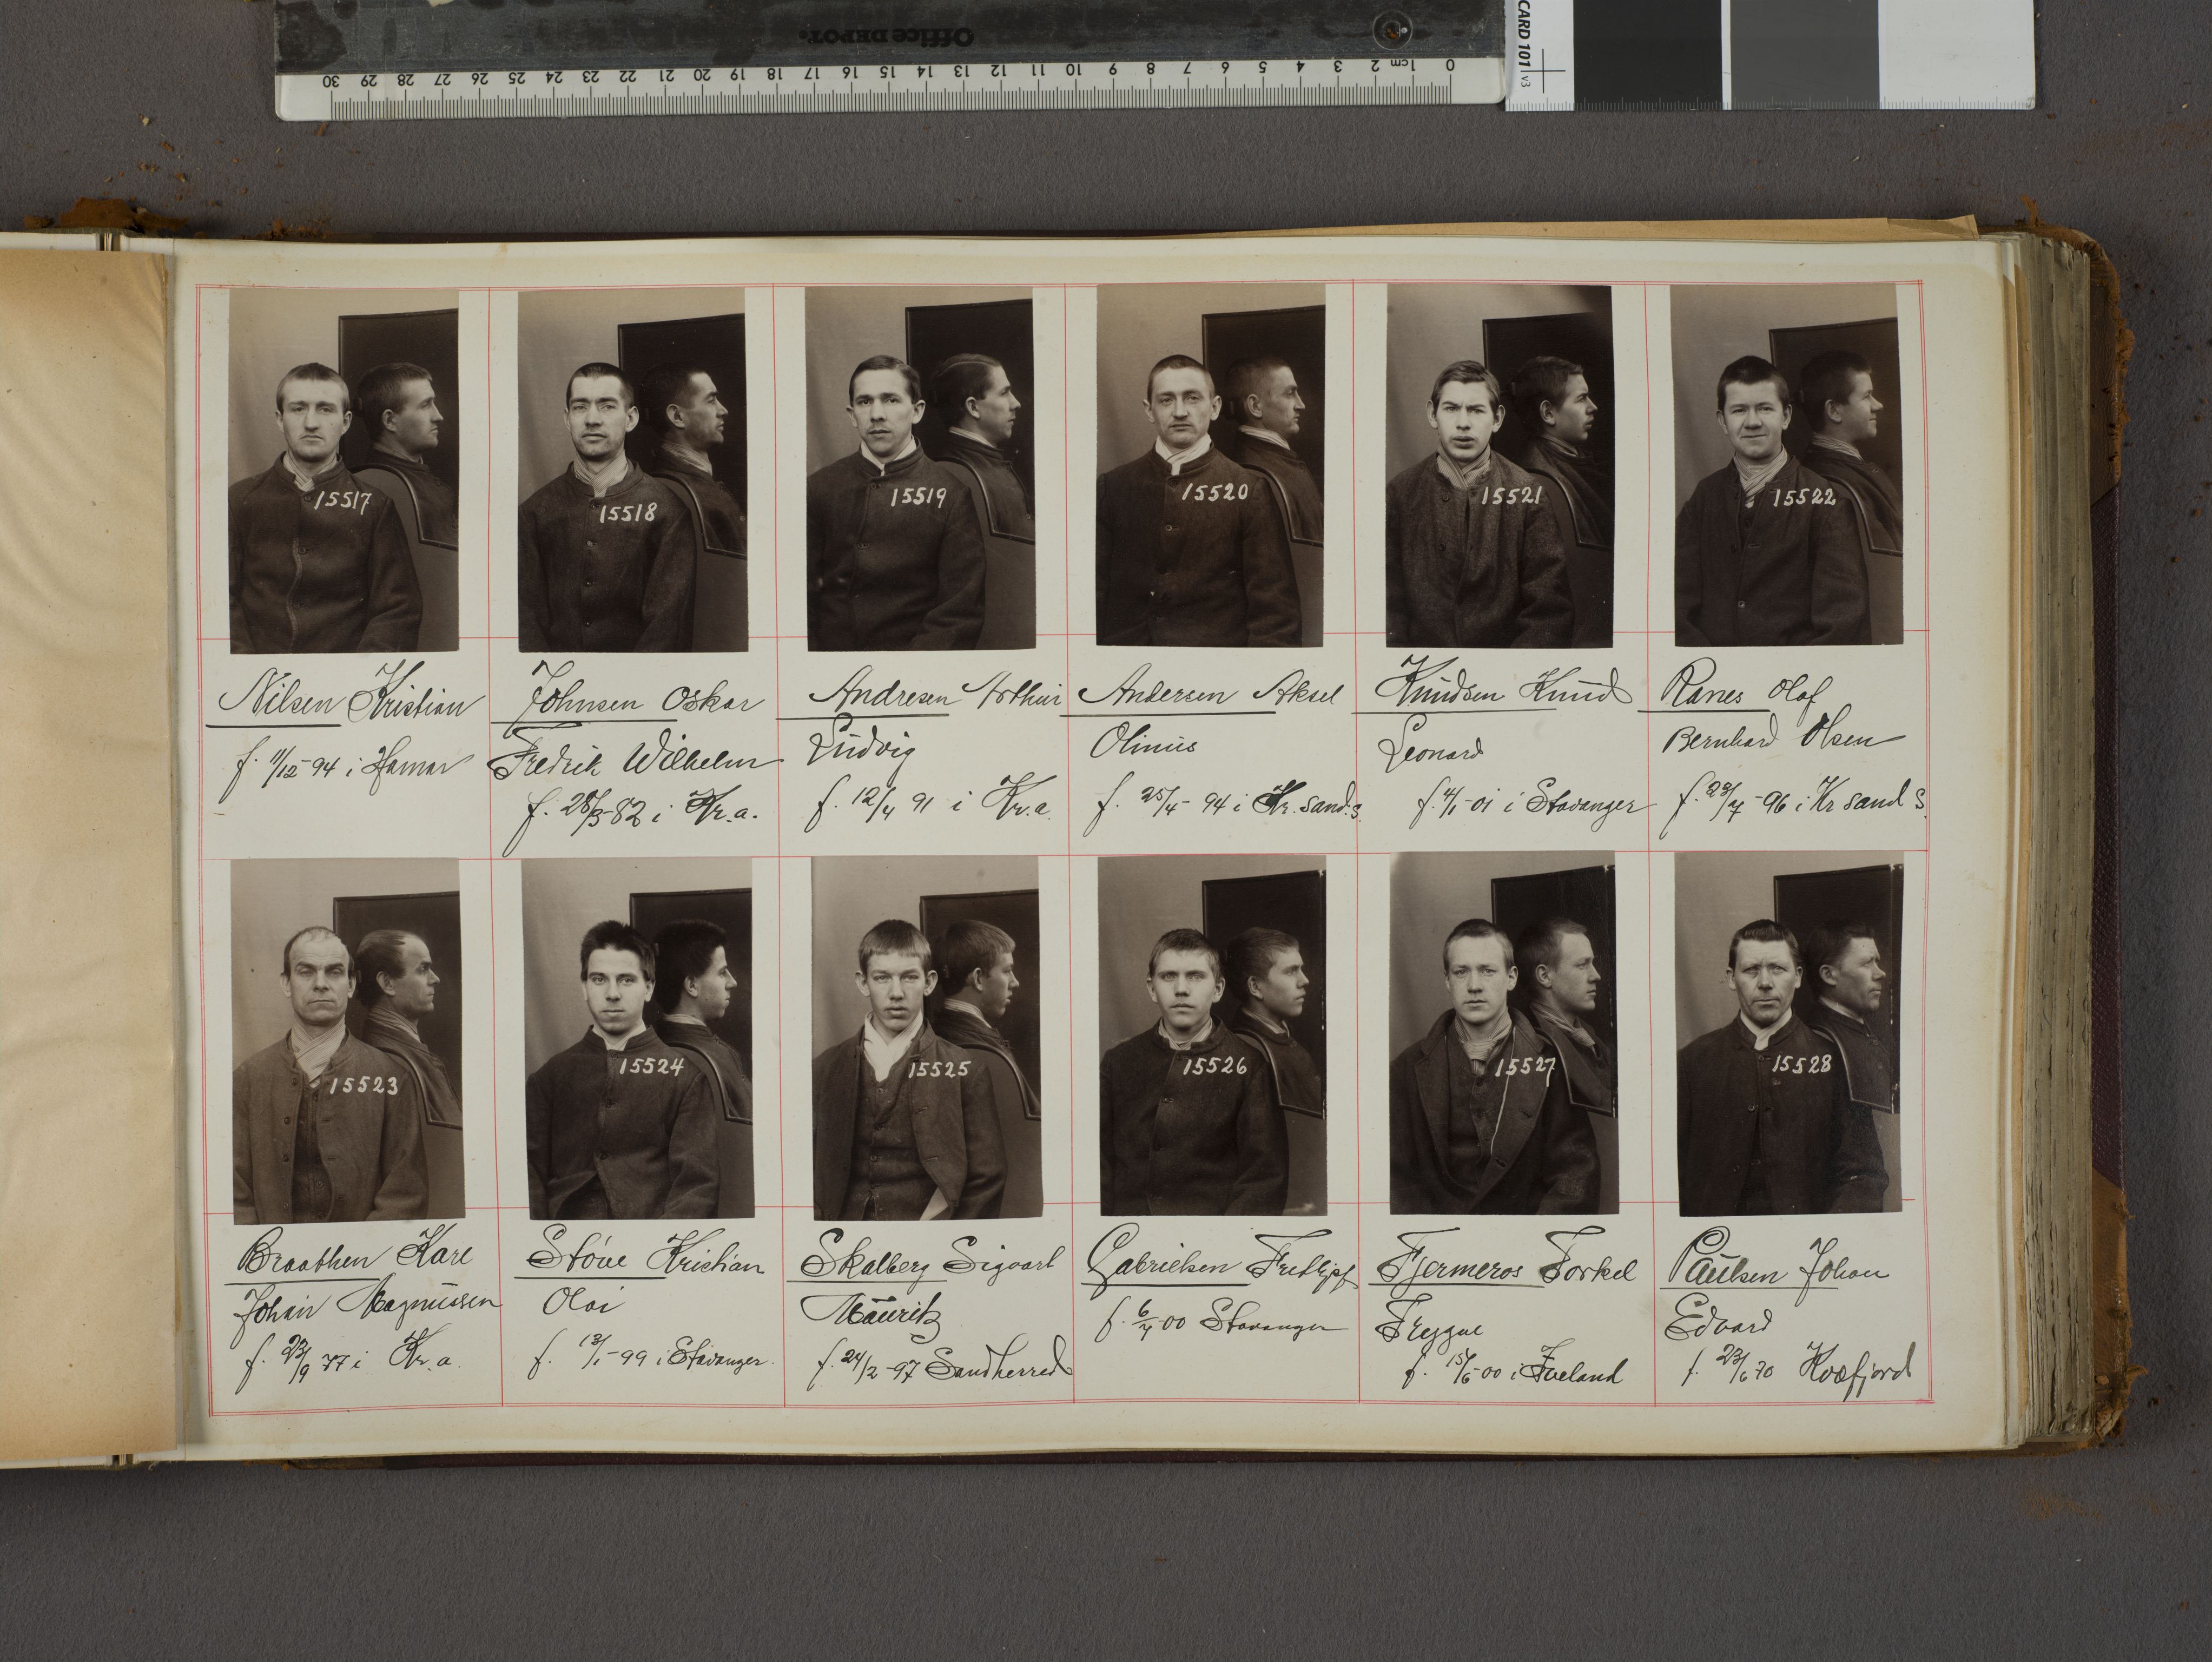 Office DEPOT.
30 29 28 27 26 25 24 23 22 21 20 19 18 17 16 15 14 13 12 11 10 9 8 7 6 5 4 3 2 1cm 0
CARD 101 v3
15517
15518
15519
15520
15521
15522
Nilsen Kristian
f. 11/12-94 i Hamar
Johnsen Oskar
Fredrik Wilhelm
f. 28/3-82 i Kr.a.
Andresen Arthur
Ludvig
f. 12/4 91 i Kr.a.
Andersen Aksel
Olinus
f. 25/4-94 i Kr.sand.s.
Knudsen Knud
Leonard
f. 4/1-01 i Stavanger
Ranes Olaf
Bernhard Olsen
f. 29/7-96 i Kr sand S.
15523
15524
15525
15526
15527
15528
Braathen Karl
Johan Magnussen
f. 23/9 77 i Kr.a.
Støve Kristian
Olai
f. 13/1-99 i Stavanger.
Skalberg Sigvart
Mauritz
f. 24/2-97 Sandherred
Gabrielsen Fritjof
f. 6/7-00 Stavanger
Fjermeros Torkel
Tryggve
f. 15/6-00 i Iveland
Paulsen Johan
Edvard
f. 23/6 70 Kvæfjord